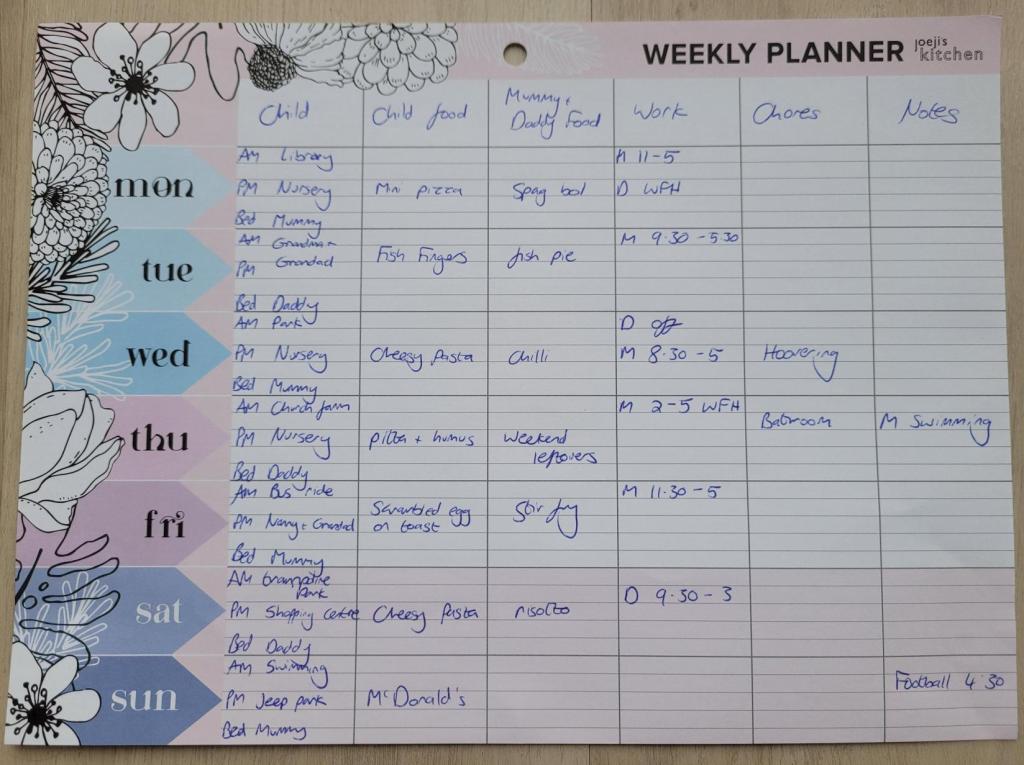 WEEKLY PLANNER Joeji's kitchen
Child
Child food
Mummy + Daddy Food
Work
Chores
Notes
mon
AM Library
PM Nursery
Bed Mummy
Mini pizza
Spag bol
M 11-5
D WFH
tue
AM Grandma +
PM Grandad
Bed Daddy
Fish Fingers
fish pie
M 9.30 - 5.30
wed
AM Park
PM Nursery
Bed Mummy
Cheesy Pasta
Chilli
D off
M 8.30 - 5
Hoovering
thu
AM Church farm
PM Nursery
Bed Daddy
pitta + humus
weekend
leftovers
M 2-5 WFH
Bathroom
M Swimming
fri
AM Bus ride
PM Nanny + Grandad
Bed Mummy
Scrambled egg
on toast
Stir fry
M 11.30 - 5
sat
AM trampoline
Park
PM Shopping Centre
Bed Daddy
Cheesy Pasta
risotto
D 9.30 - 3
sun
AM Swimming
PM Jeep park
Bed Mummy
McDonald's
Football 4.30